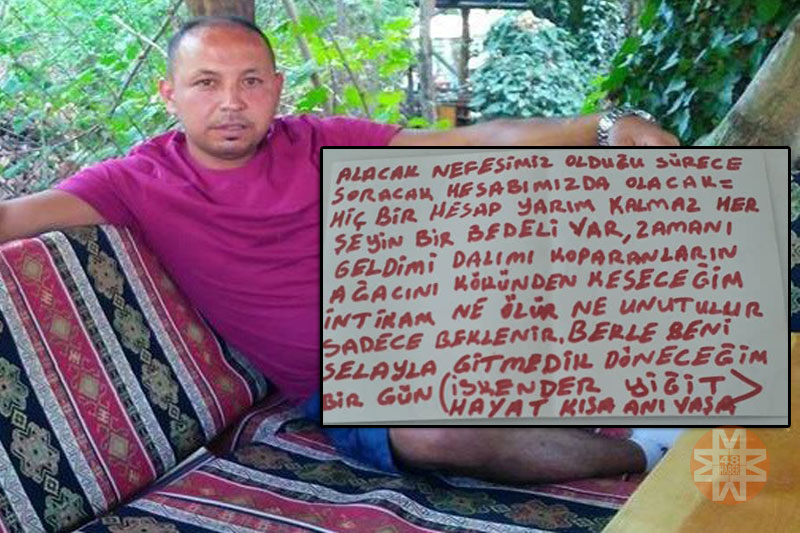 ALACAK NEFESİMİZ OLDUĞU SÜRECE
SORACAK HESABIMIZDA OLACAK=
HİÇ BİR HESAP YARIM KALMAZ HER
ŞEYİN BİR BEDELİ VAR, ZAMANI
GELDİMİ DALIMI KOPARANLARIN
AĞACINI KÖKÜNDEN KESECEĞİM
İNTİKAM NE ÖLÜR NE UNUTULUR
SADECE BEKLENİR. BEKLE BENİ
SELAYLA GİTMEDİK DÖNECEĞİM
BİR GÜN (İSKENDER YİĞİT>
HAYAT KISA ANI YAŞA